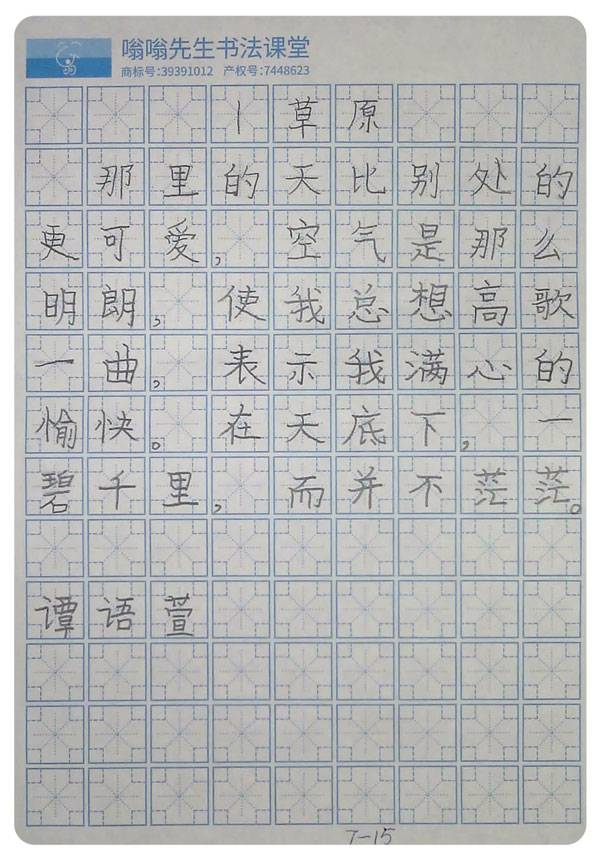 嗡嗡先生书法课堂
商标号:39391012 产权号:7448623
丨草原
那里的天比别处的
更可爱，空气是那么
明朗，使我总想高歌
一曲，表示我满心的
愉快。在天底下，一
碧千里，而并不茫茫。
谭语萱
7-15